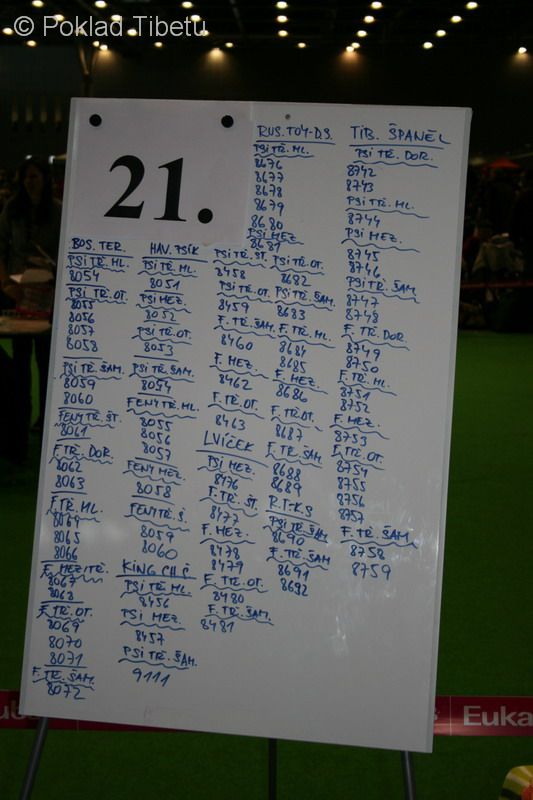 © Poklad Tibetu
21.
BOS. TER.
PSI TŘ. ML.
8054
PSI TŘ. OT.
8055
8056
8057
8058
PSI TŘ. ŠAM.
8059
8060
FENY TŘ. ŠT.
8061
F. TŘ. DOR.
8062
8063
F. TŘ. ML.
8064
8065
8066
F. MEZITŘ.
8067
8068
F. TŘ. OT.
8069
8070
8071
F. TŘ. ŠAM.
8072
HAV. PSÍK
PSI TŘ. ML.
8051
PSI MEZ.
8052
PSI TŘ. OT.
8053
PSI TŘ. ŠAM.
8054
FENY TŘ. ML.
8055
8056
8057
FENY MEZ.
8058
FENY TŘ. Š.
8059
8060
KING CH. Č
PSI TŘ. ML.
8456
PSI MEZ.
8457
PSI TŘ. ŠAM.
9111
PSI TŘ. ŠT.
8458
PSI TŘ. OT.
8459
F. TŘ. ŠAM.
8460
F. MEZ.
8462
F. TŘ. OT.
8463
LVÍČEK
PSI MEZ.
8476
F. TŘ. ŠT.
8477
F. MEZ.
8478
8479
F. TŘ. OT.
8480
F. TŘ. ŠAM.
8481
RUS. TOY-DS.
PSI TŘ. ML.
8676
8677
8678
8679
8680
PSI MEZ.
8681
PSI TŘ. OT.
8682
PSI TŘ. ŠAM.
8683
F. TŘ. ML.
8684
8685
F. MEZ.
8686
F. TŘ. OT.
8687
F. TŘ. ŠAM
8688
8689
R.T.-KS
PSI TŘ. ŠAM.
8690
F. TŘ. ŠAM
8691
8692
TIB. ŠPANĚL
PSI TŘ. DOR.
8742
8743
PSI TŘ. ML.
8744
PSI MEZ.
8745
8746
PSI TŘ. ŠAM.
8747
8748
F. TŘ. DOR.
8749
8750
F. TŘ. ML.
8751
8752
F. MEZ.
8753
F. TŘ. OT.
8754
8755
8756
8757
F. TŘ. ŠAM.
8758
8759
Euka